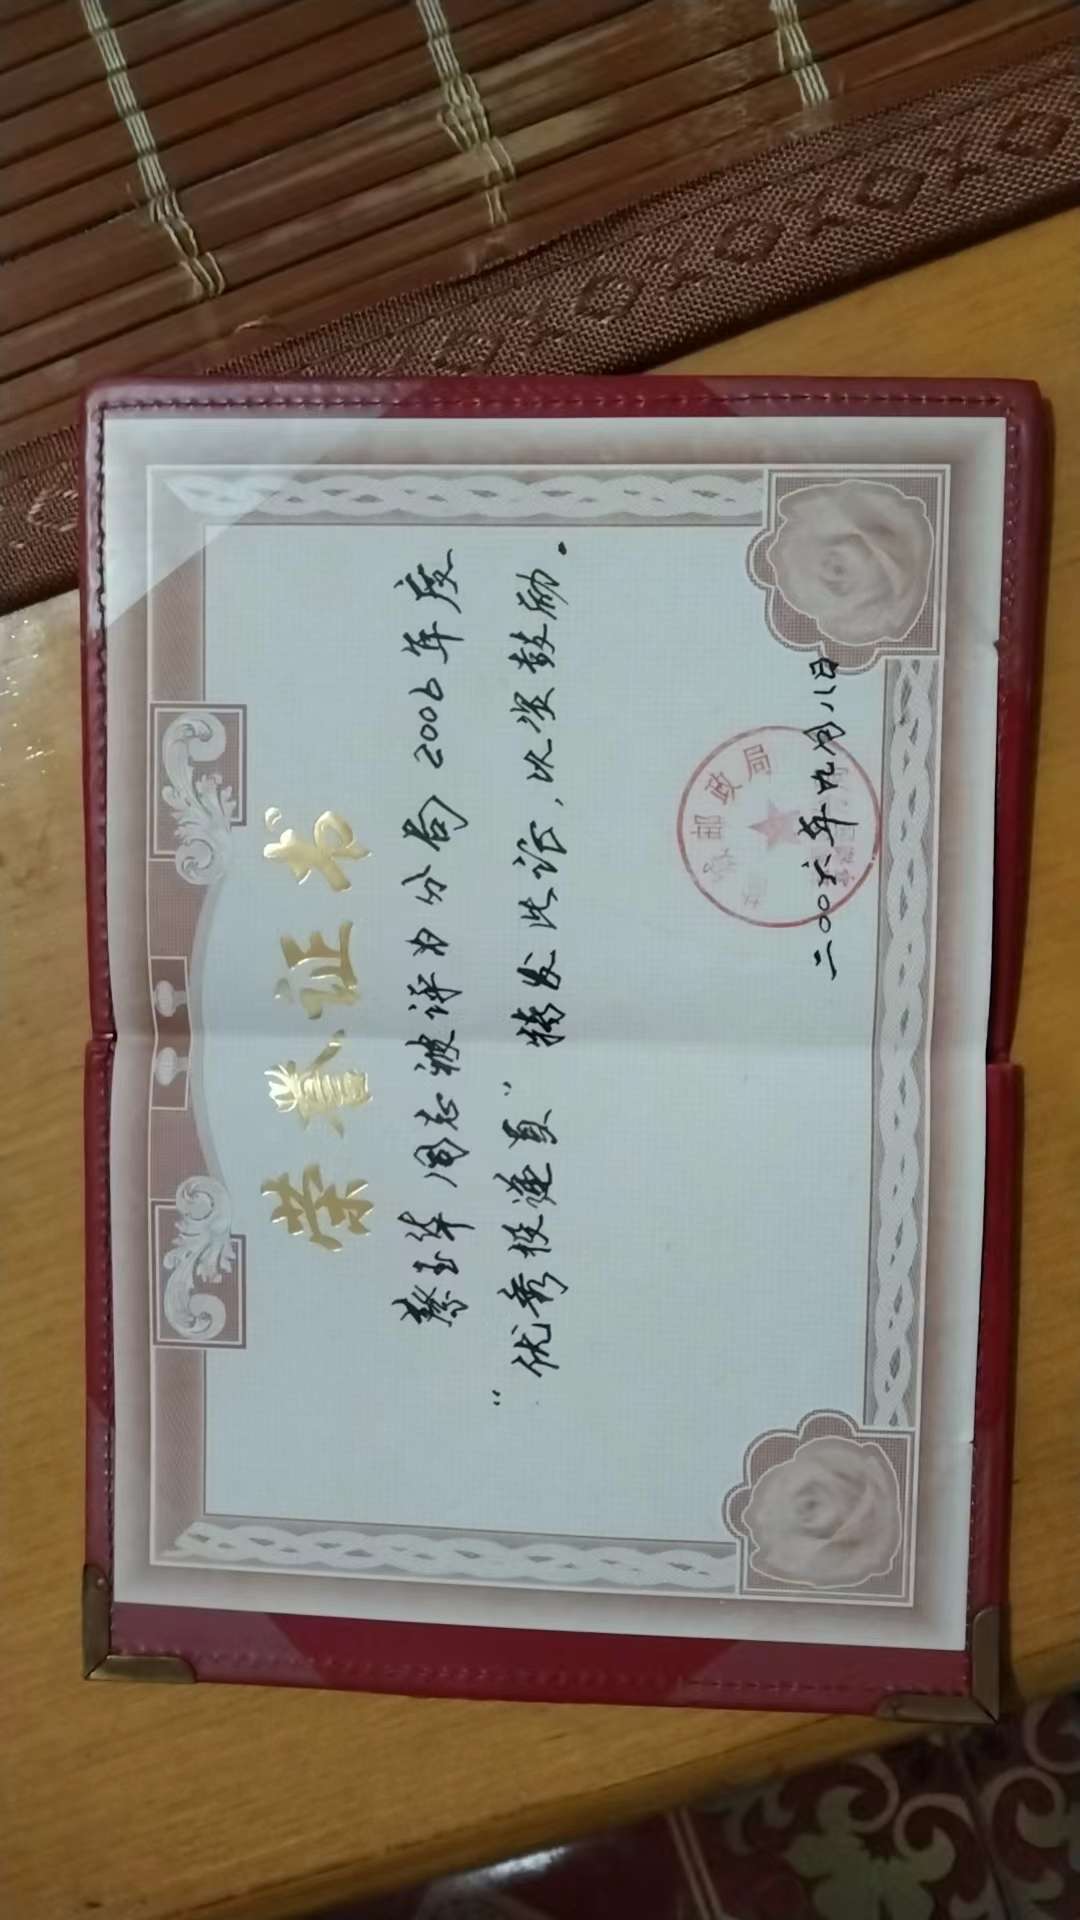 荣誉证书
蔡玉华同志被评为分局2006年度
“优秀投递员”特发此证,以资鼓励.
邮政局
二00六年九月八日